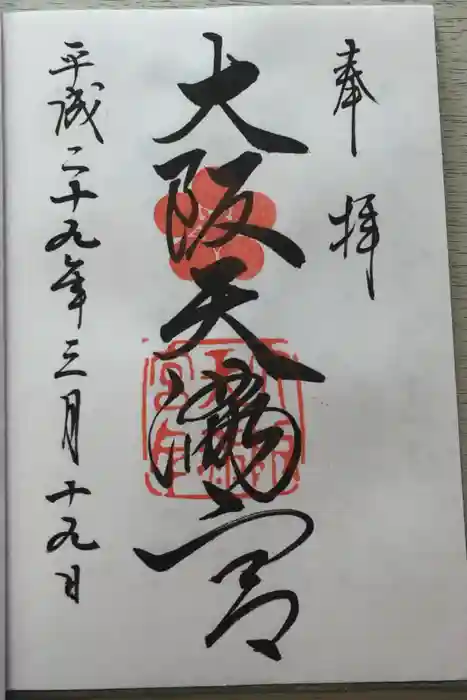 奉拝
大阪天満宮
平成二十九年三月十九日